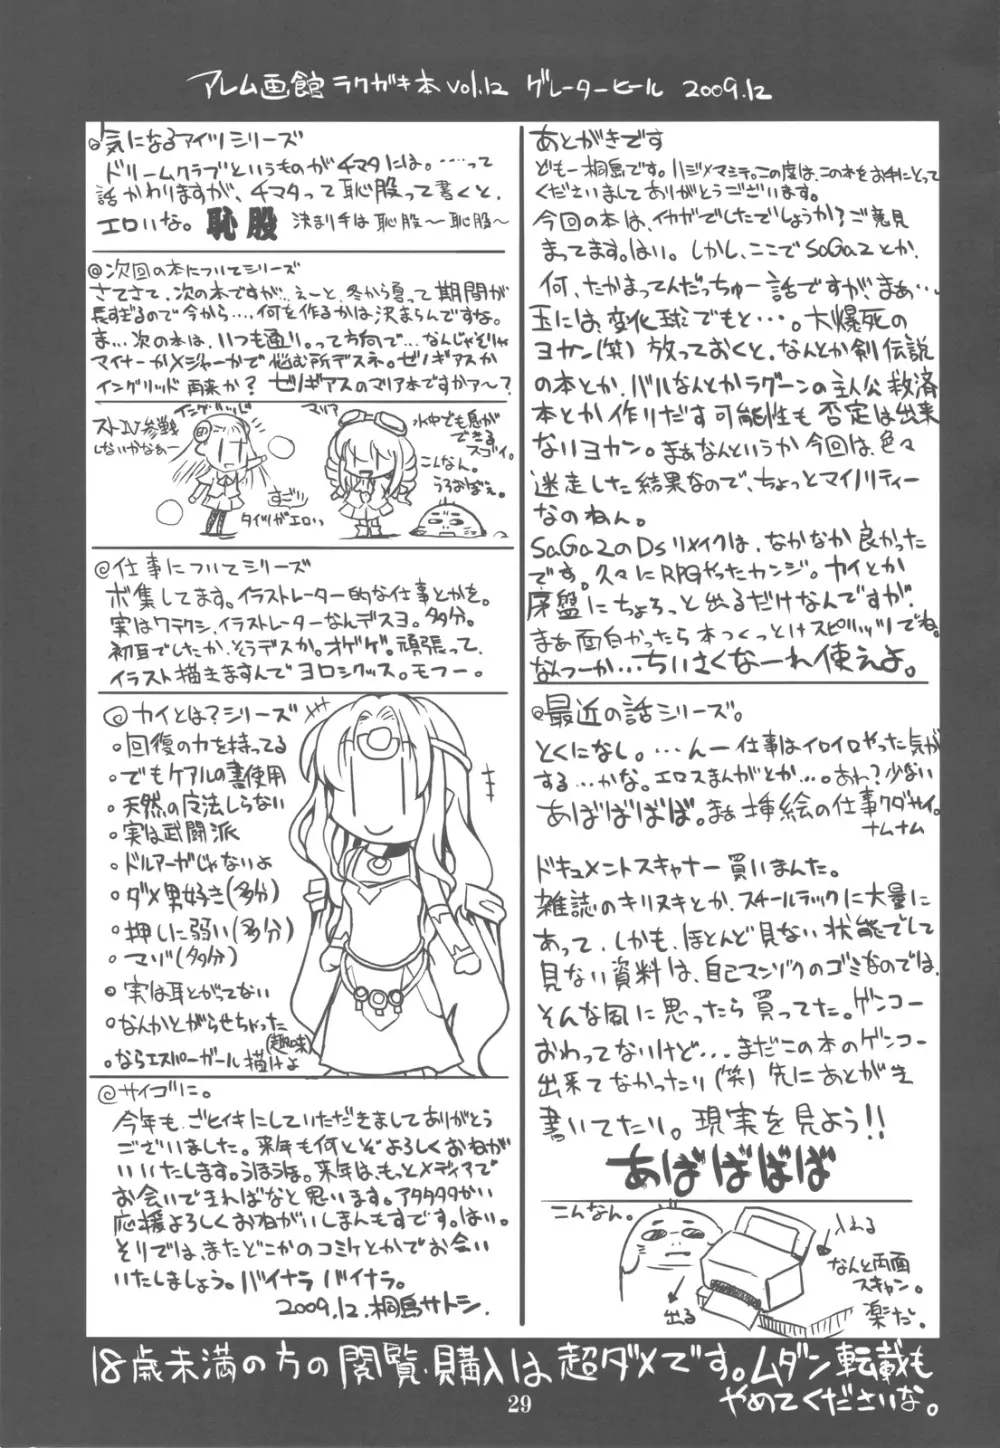 アレム画館 ラクガキ本 vol.12 グレーターヒール 2009.12
◎気になるアイツシリーズ
ドリームクラブというものがチマタには。……って
話かわりますが、チマタって恥股って書くと、
エロいな。恥股 決まり手は恥股〜恥股〜
◎次回の本についてシリーズ
さてさて、次の本ですが…えーと、冬から夏って期間が
長すぎるので今から…、何を作るかは決まらんですな。
ま…次の本は、いつも通り。って方向で…なんじゃそりゃ
マイナーかメジャーかで悩む所デスネ。ゼノギアスか
イングリッド再来か？ゼノギアスのマリア本ですかァ〜？
イングリッド
ストIV参戦
しないかなぁー
すごい
タイツがエロいっ
マリア
水中でも息が
できる
スゴイ。
こんなん。
うろおぼえ。
◎仕事についてシリーズ
ボ集してます。イラストレーター的な仕事とかを。
実はワテクシ、イラストレーターなんデスヨ。多分。
初耳でしたか、そうデスか。オゲゲ。頑張って、
イラスト描きますんでヨロシクッス。モフー。
◎カイとは？シリーズ
◦回復の力を持ってる
◦でもケアルの書使用
◦天然の魔法しらない
◦実は武闘派
◦ドルアーガじゃないよ
◦ダメ男好き(多分)
◦押しに弱い(多分)
◦マゾ(多分)
◦実は耳とがってない
◦なんかとがらせちゃった
(趣味)
◦ならエスパーガール描けよ
◎サイゴに。
今年も、ごヒイキにしていただきましてありがとう
ございました。来年も何とぞよろしくおねがい
いいたします。うほうほ。来年は、もっとメディアで
お会いできればなと思います。アタタタタかい
応援よろしくおねがいしまんもすです。はい。
そりでは、またどこかのコミケとかでお会い
いたしましょう。バイナラバイナラ。
2009.12.桐島サトシ.
あとがきです
ども一桐島です。ハジメマシテ。この度は、この本をお手にとって
くださいましてありがとうございます。
今回の本は、イカガでしたでしょうか？ご意見
まってます。はい。しかし、ここでSaGa2とか、
何、たかまってんだっちゅー話ですが、まぁ…
玉には、変化球でもと…。大爆死の
ヨカン(笑) 放っておくと、なんとか剣伝説
の本とか、バルなんとかラグーンの主人公救済
本とか作りだす可能性も否定は出来
ないヨカン。まぁなんというか今回は、色々
迷走した結果なので、ちょっとマイノリティー
なのねん。
SaGa2のDsリメイクは、なかなか良かった
です。久々にRPGやったカンジ。カイとか
序盤にちょろっと出るだけなんですが、
まぁ面白かったら本つくっとけスピリッツでね。
なんつーか…ちいさくなーれ使えよ。
◎最近の話シリーズ。
とくになし。…んー仕事はイロイロやった気が
する…かな。エロスまんがとか…。あれ？少ない
あばばばば。まぁ挿絵の仕事クダサイ。
ナムナム
ドキュメントスキャナー買いまんた。
雑誌のキリヌキとか、スチールラックに大量に
あって、しかも、ほとんど見ない状態でして
見ない資料は、自己マンゾクのゴミなのでは、
そんな風に思ったら買ってた。ゲンコー
おわってないけど…まだこの本のゲンコー
出来てなかったり(笑) 先にあとがき
書いてたり。現実を見よう!!
あばばばば
こんなん。
入れる
なんと両面
スキャン。
楽だ。
出る
18歳未満の方の閲覧・購入は超ダメです。ムダン転載も
やめてくださいな。
29